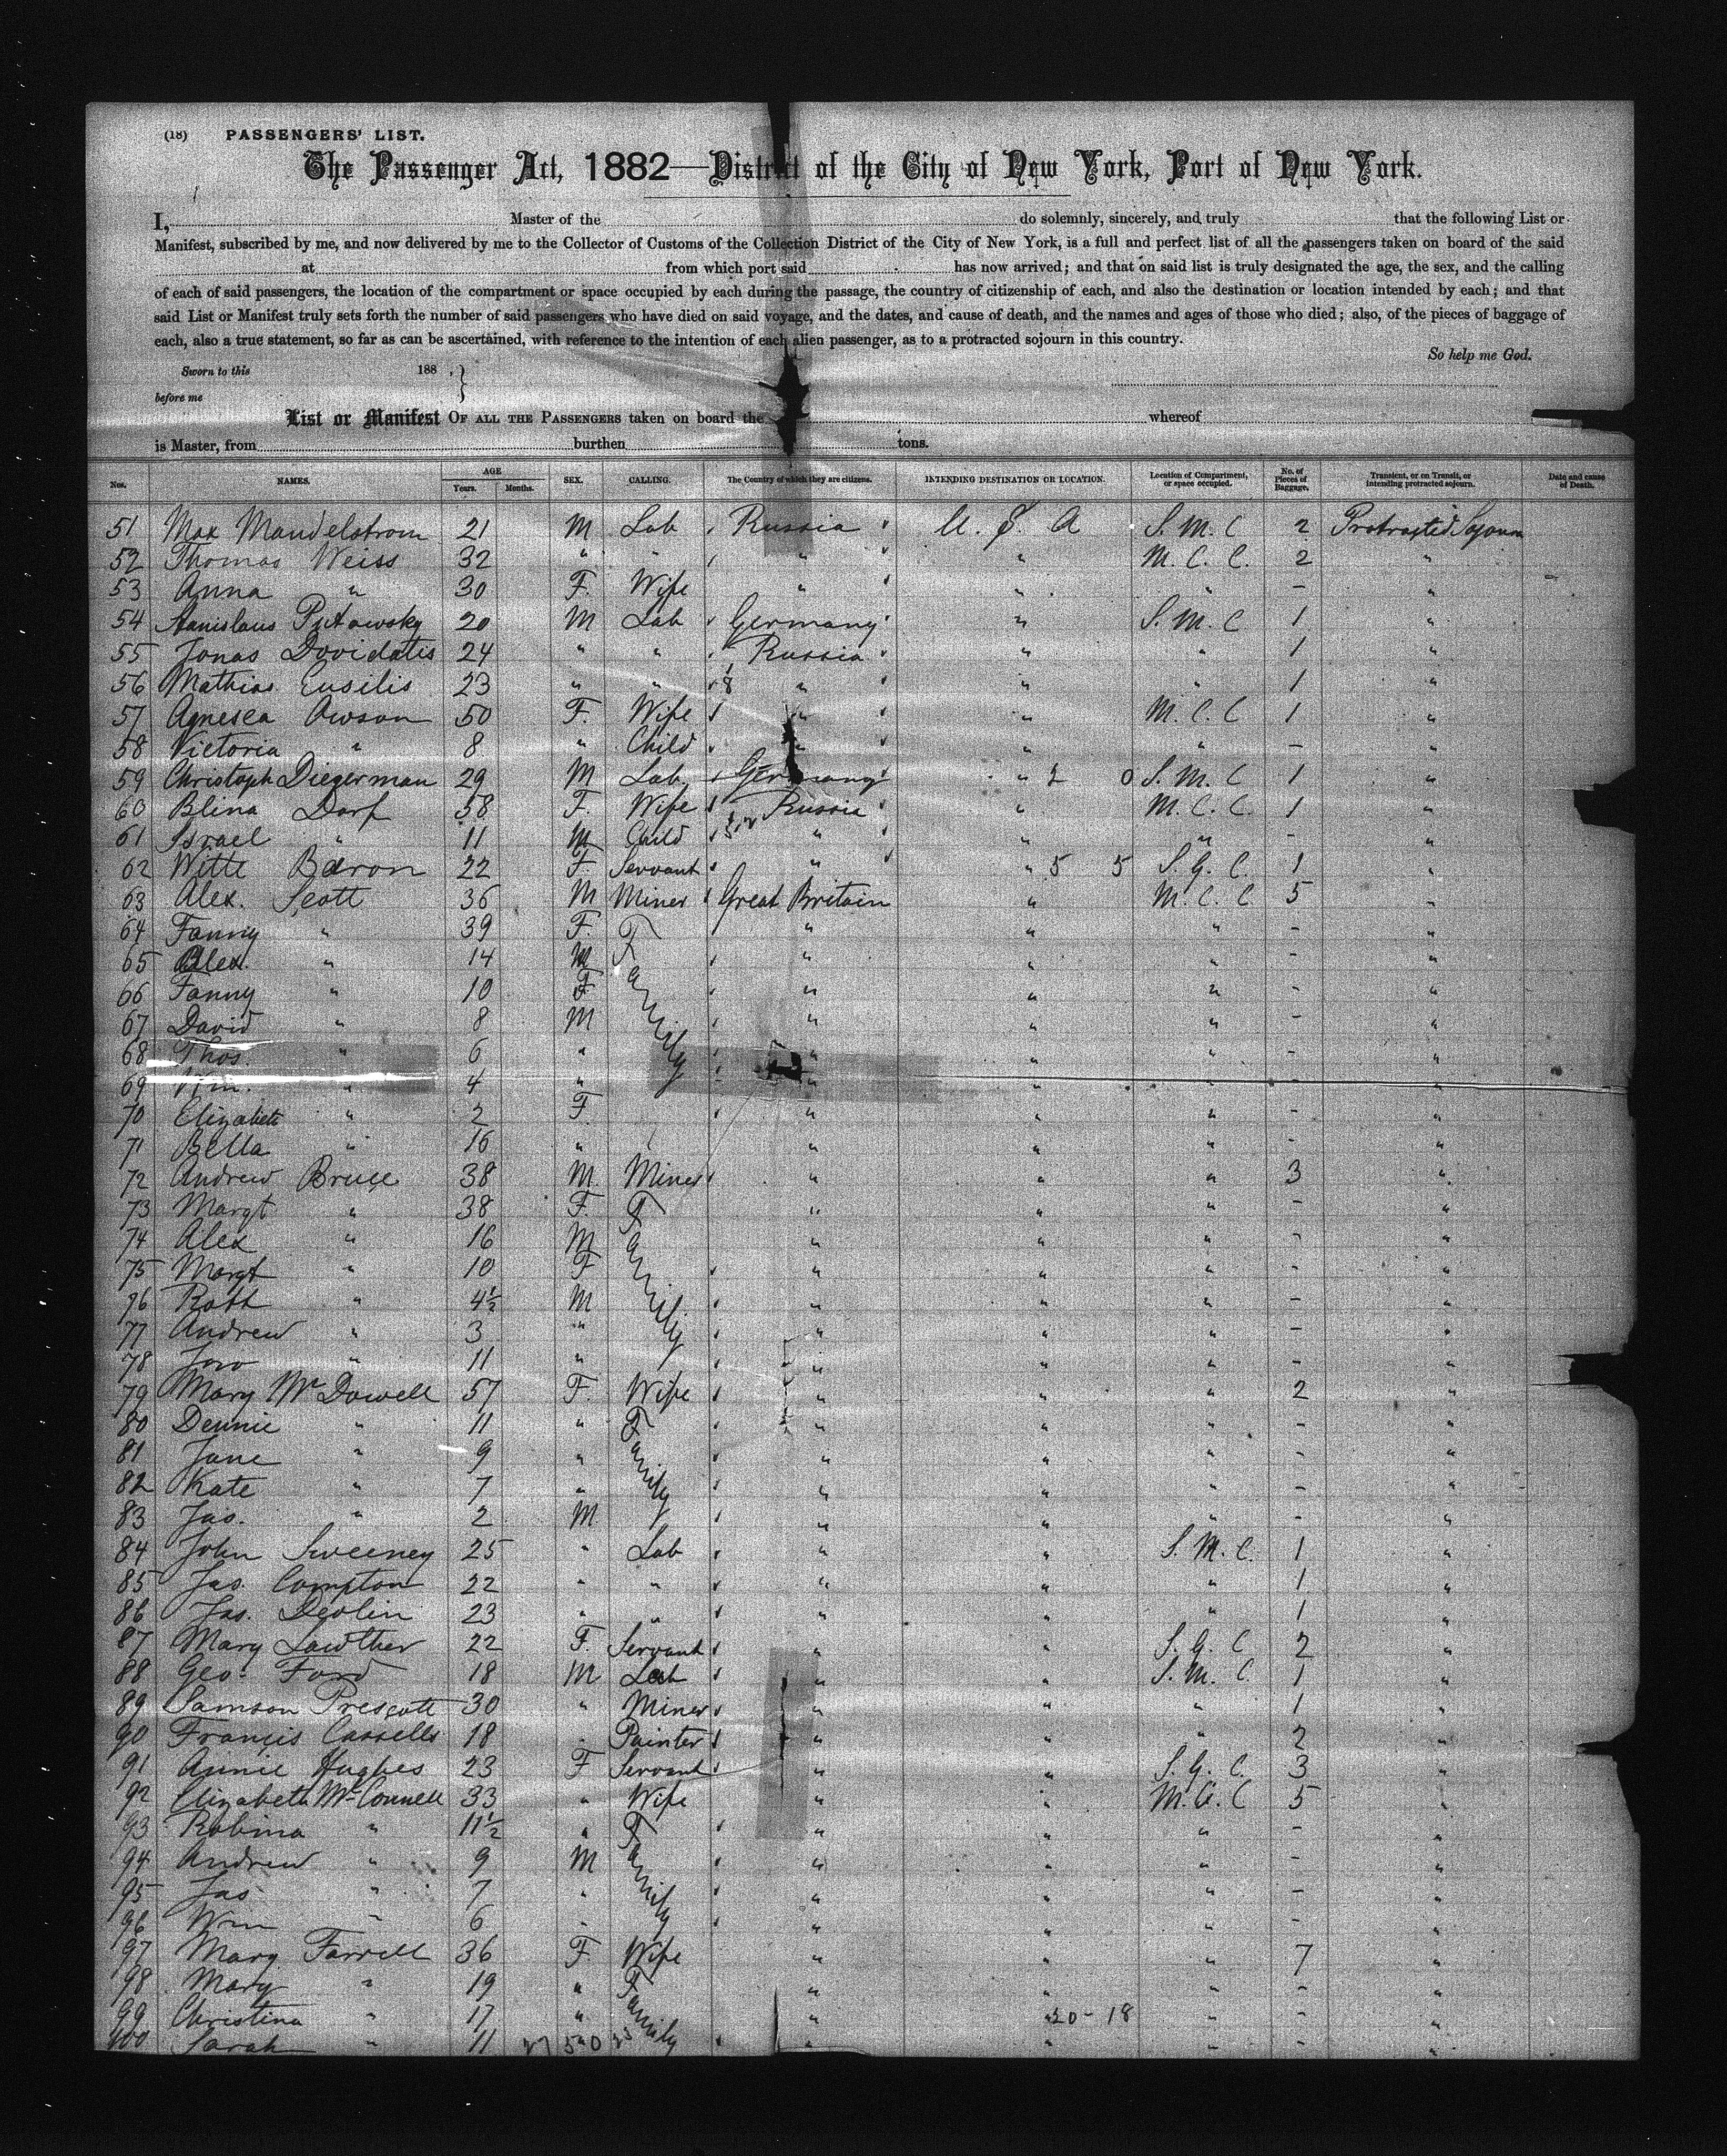 (18) PASSENGERS' LIST.
The Passenger Act, 1882—District of the City of New York, Port of New York.
I, Master of the do solemnly, sincerely, and truly that the following List or
Manifest, subscribed by me, and now delivered by me to the Collector of Customs of the Collection District of the City of New York, is a full and perfect list of all the passengers taken on board of the said
at from which port said has now arrived; and that on said list is truly designated the age, the sex, and the calling
of each of said passengers, the location of the compartment or space occupied by each during the passage, the country of citizenship of each, and also the destination or location intended by each; and that
said List or Manifest truly sets forth the number of said passengers who have died on said voyage, and the dates, and cause of death, and the names and ages of those who died; also, of the pieces of baggage of
each, also a true statement, so far as can be ascertained, with reference to the intention of each alien passenger, as to a protracted sojourn in this country.
So help me God.
Sworn to this 188 . }
before me
List or Manifest OF ALL THE PASSENGERS taken on board the whereof
is Master, from burthen tons.
Nos. NAMES. AGE Years. Months. SEX. CALLING. The Country of which they are citizens. INTENDING DESTINATION OR LOCATION. Location of Compartment, or space occupied. No. of Pieces of Baggage. Transient, or on Transit, or intending protracted sojourn. Date and cause of Death.
51 Max Mandelstrom 21 M Lab Russia U. S. A S. M. C 2 Protracted Sojourn
52 Thomas Weiss 32 " " " " M. C. C. 2 "
53 Anna " 30 F. Wife " " " - "
54 Stanislaus 20 M Lab Germany " S. M. C 1 "
55 Jonas Dovidatis 24 " " Russia " " 1 "
56 Mathias Cusilis 23 " " " " " 1 "
57 Agnesca Awson 50 F. Wife " " M. C. C 1 "
58 Victoria " 8 " Child " " " - "
59 Christoph Diegerman 29 M Lab Germany " S. M. C 1 "
60 Blina Dorf 58 F. Wife Russia " M. C. C. 1 "
61 Israel " 11 M Child " " " - "
62 Witte Baron 22 F Servant " " 5 5 S. G. C. 1 "
63 Alex. Scott 36 M Miner Great Britain " M. C. C 5 "
64 Fanny " 39 F. Family " " " - "
65 Alex. " 14 M " " " - "
66 Fanny " 10 F " " " - "
67 David " 8 M " " " - "
68 Thos. " 6 " " " " - "
69 Wm. " 4 " " " " - "
70 Elizabeth " 2 F " " " - "
71 Bella " 16 " " " " - "
72 Andrew Bruce 38 M Miner " " " 3 "
73 Margt " 38 F. Family " " " - "
74 Alex " 16 M " " " - "
75 Margt " 10 F " " " - "
76 Robt " 4½ M " " " - "
77 Andrew " 3 " " " " - "
78 " 11 " " " " - "
79 Mary McDowell 57 F. Wife " " " 2 "
80 Dennie " 11 " Family " " " - "
81 Jane " 9 " " " " - "
82 Kate " 7 " " " " - "
83 Jas. " 2 M " " " - "
84 John Sweeney 25 " Lab " " S. M. C. 1 "
85 Jas. Compton 22 " " " " " 1 "
86 Jas. Devlin 23 " " " " " 1 "
87 Mary Lowther 22 F. Servant " " S. G. C 2 "
88 Geo. Ford 18 M Lab " " S. M. C. 1 "
89 Samson Prescott 30 " Miner " " " 1 "
90 Francis Cassells 18 " Painter " " " 2 "
91 Annie Hughes 23 F Servant " " S. G. C. 3 "
92 Elizabeth McConnell 33 " Wife " " M. C. C 5 "
93 Robina " 11½ " Family " " " - "
94 Andrew " 9 M " " " - "
95 Jas " 7 " " " " - "
96 Wm " 6 " " " " - "
97 Mary Farrell 36 F Wife " " " 7 "
98 Mary " 19 " Family " " " - "
99 Christina " 17 " " " 20-18 " - "
400 Sarah " 11 " " " " - "